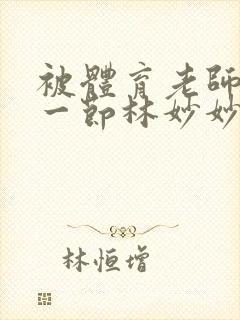 被體育老師
一節林妙妙
林恒增